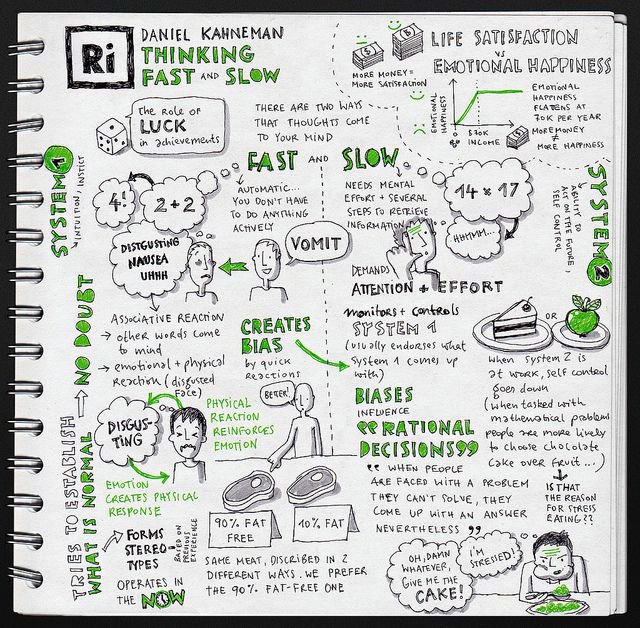 Ri
DANIEL KAHNEMAN
THINKING
FAST AND SLOW
The Role of
LUCK
in achievements
THERE ARE TWO WAYS
THAT THOUGHTS COME
TO YOUR MIND
MORE MONEY=
MORE SATISFACTION
LIFE SATISFACTION
VS
EMOTIONAL HAPPINESS
EMOTIONAL
HAPPINESS
$70K
INCOME
EMOTIONAL
HAPPINESS
FLATENS AT
70K PER YEAR
MORE MONEY
≠
MORE HAPPINESS
SYSTEM 1
INTUITION, INSTICT
FAST AND SLOW
4!
2+2
AUTOMATIC...
YOU DON'T HAVE
TO DO ANYTHING
ACTIVELY
NEEDS MENTAL
EFFORT + SEVERAL
STEPS TO RETRIEVE
INFORMATION
14 x 17
HHMMM...
SYSTEM 2
ABILITY TO
ACT ON THE FUTURE,
SELF CONTROL
DISTGUSTING
NAUSEA
UHHH
VOMIT
DEMANDS
ATTENTION + EFFORT
ASSOCIATIVE REACTION
→ other words come
to mind
→ emotional + physical
Reaction (disgusted
face)
CREATES
BIAS
by quick
reactions
monitors + controls
SYSTEM 1
(usually endorses what
System 1 comes up
with)
OR
when system 2 is
at work, self control
goes down
(when tasked with
mathematical problems
people are more likely
to choose chocolate
cake over fruit...)
IS THAT
THE REASON
FOR STRESS
EATING??
TRIES TO ESTABLISH
WHAT IS NORMAL
NO DOUBT
DISGUS-
TING
PHYSICAL
REACTION
REINFORCES
EMOTION
EMOTION
CREATES PHYSICAL
RESPONSE
BETTER!
BIASES
INFLUENCE
"RATIONAL
DECISIONS"
" WHEN PEOPLE
ARE FACED WITH A PROBLEM
THEY CAN'T SOLVE, THEY
COME UP WITH AN ANSWER
NEVERTHELESS "
90% FAT
FREE
10% FAT
SAME MEAT, DISCRIBED IN 2
DIFFERENT WAYS. WE PREFER
THE 90% FAT-FREE ONE
FORMS
STEREO-
TYPES
BASED ON
PREVIOUS
EXPERIENCE
OPERATES IN
THE NOW
OH, DAMN
WHATEVER,
GIVE ME THE
CAKE!
I'M
STRESSED!